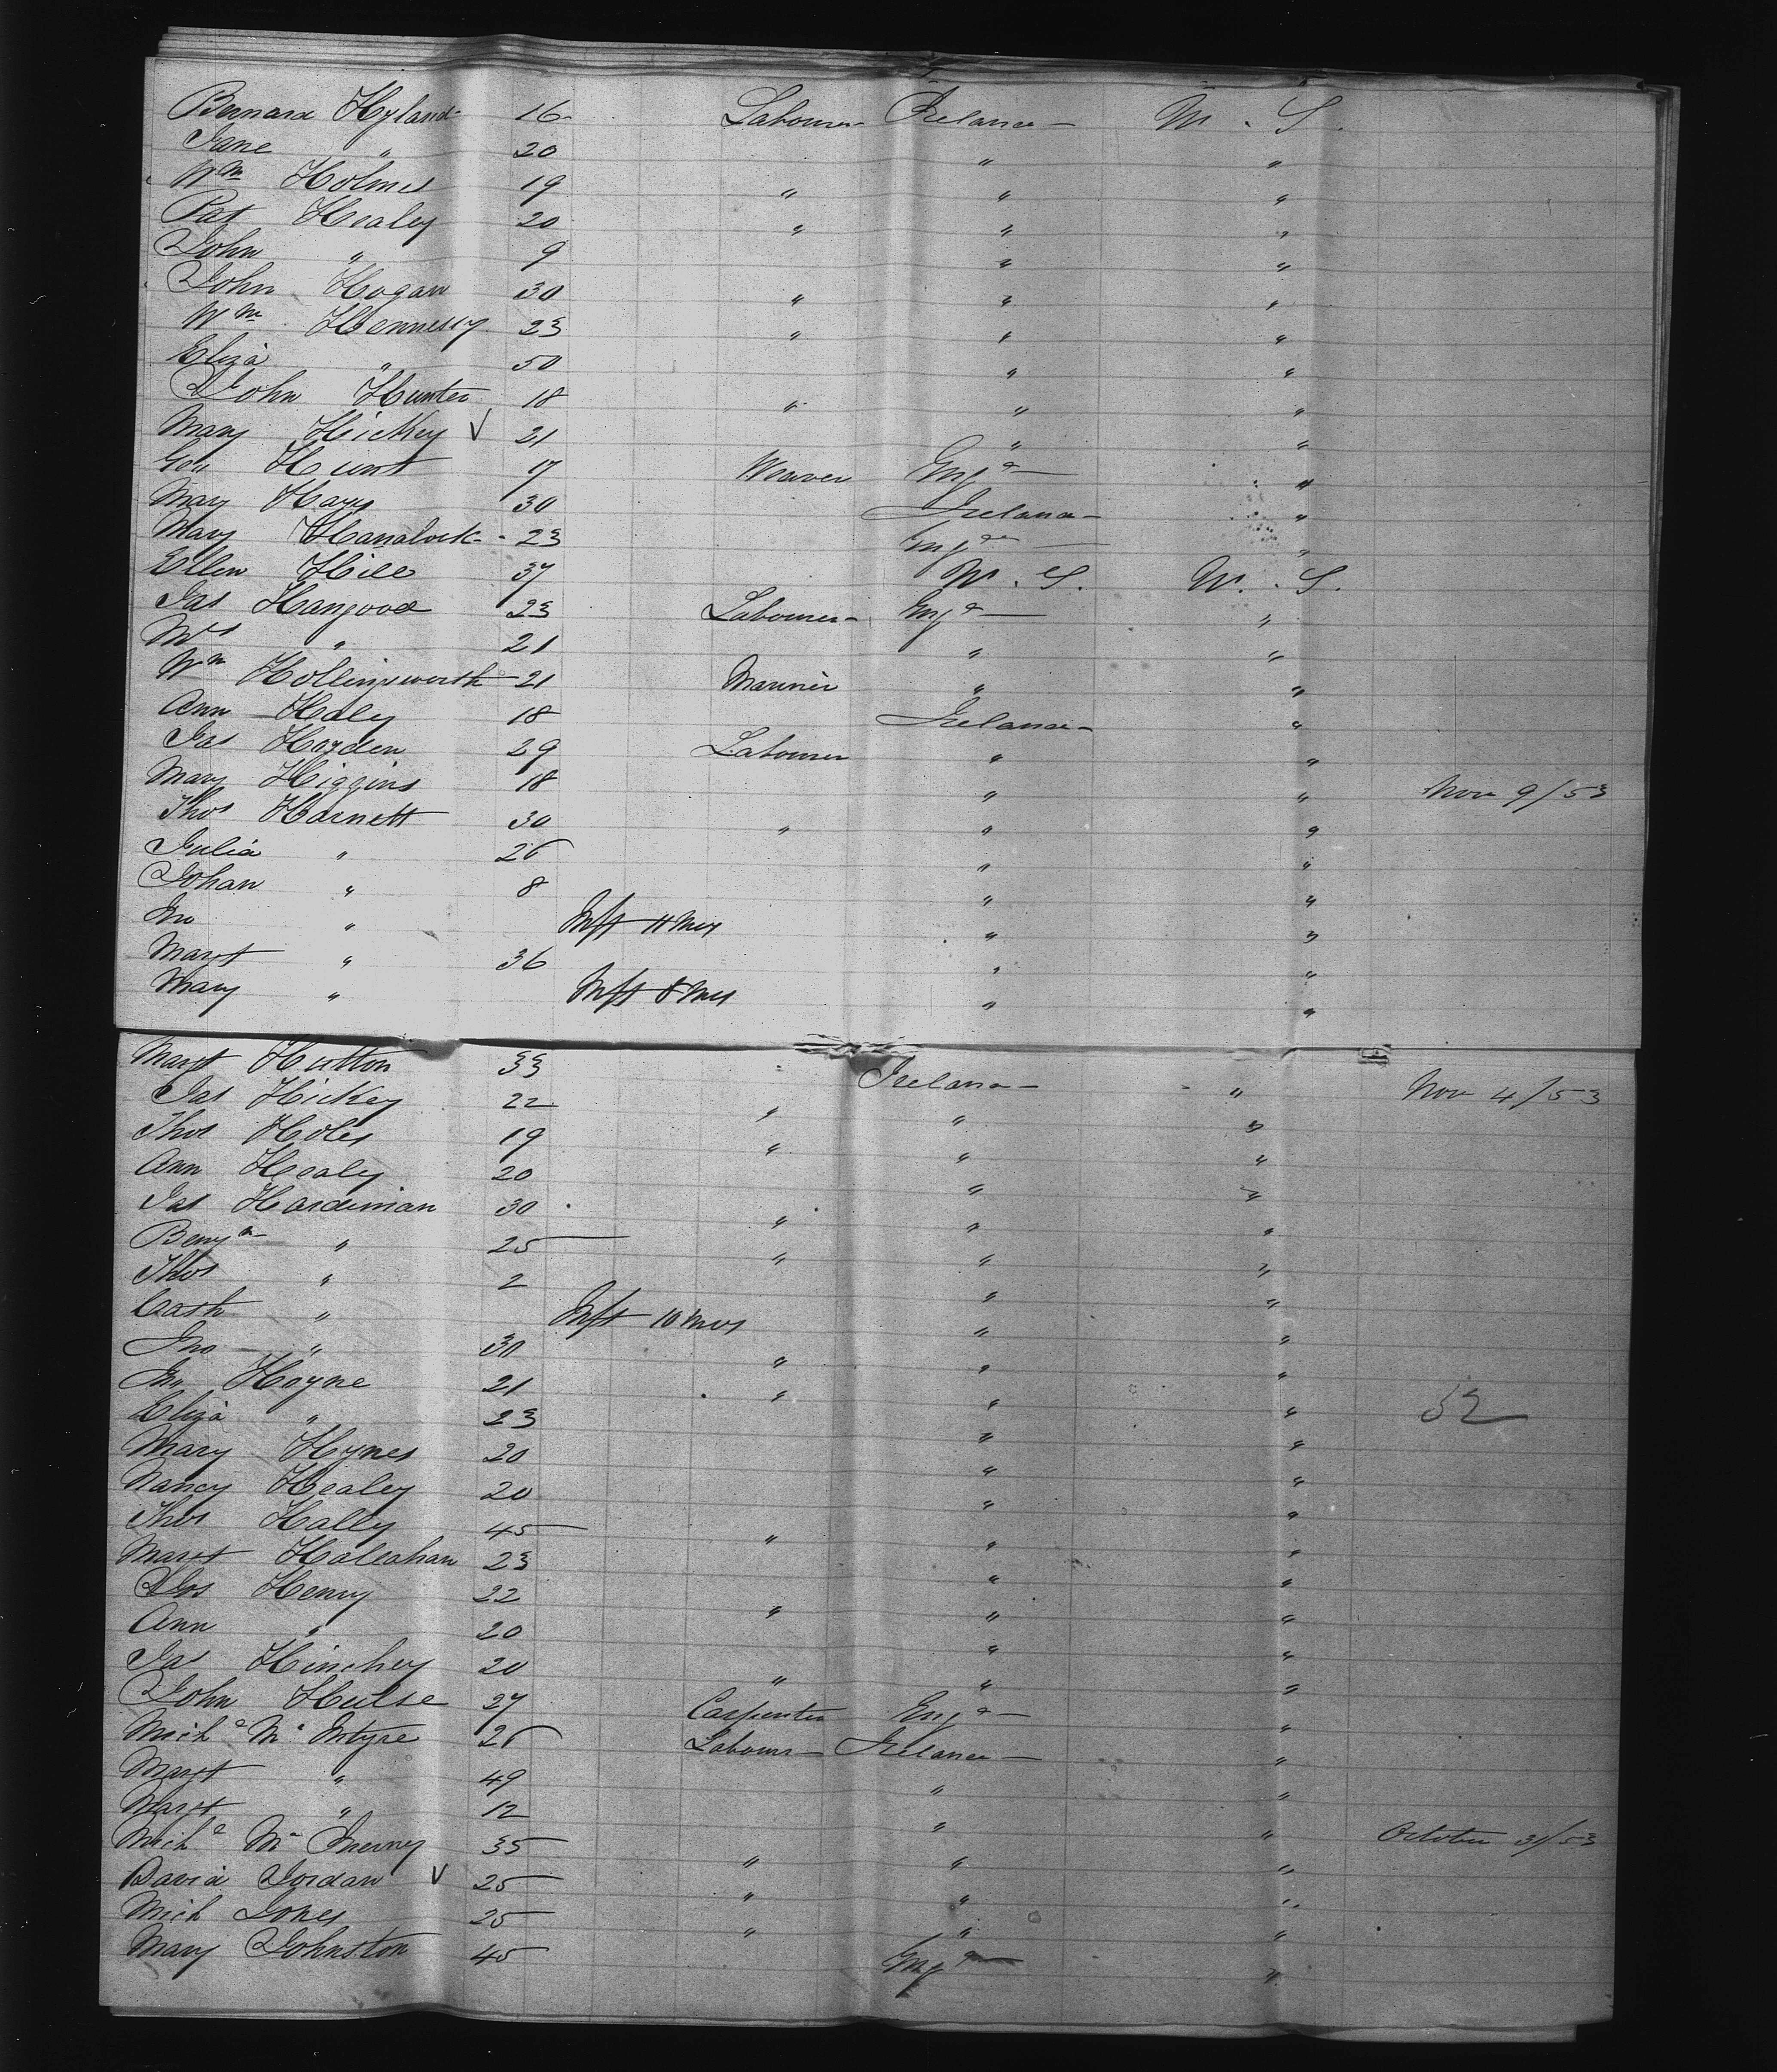 Bernard Hyland 16 Labourer Ireland U. S.
Jane " 20 " "
Wm Holmes 19 " " "
Pat Healey 20 " " "
John " 9 " "
John Hogan 30 " " "
Wm Hennessy 23 " " "
Eliza " 50 " "
John Hunter 18 " " "
Mary Hickey √ 21 " "
Geo Hunt 17 Weaver Engd "
Mary Hays 30 Ireland "
Mary 23 Engd "
Ellen Hill 37 U. S. U. S.
Jas 23 Labourer Engd "
Mrs " 21 " "
Wm Hollingsworth 21 Mariner " "
Ann Haley 18 Ireland "
Jas Hayden 29 Labourer " "
Mary Higgins 18 " " Nov 9/53
Thos Harnett 30 " " "
Julia " 26 " "
Johan " 8 " "
Jno " Inft 11 Mos " "
Margt " 36 " "
Mary " Inft 8 Mos " "
Margt Hutton 33 Ireland " Nov 4/53
Jas Hickey 22 " " "
Thos Holes 19 " " "
Ann Healy 20 " "
Jas Hardiman 30 " " "
Benjn " 25 " " "
Thos " 2 " "
Cath " Inft 10 Mos " "
Jno " 30 " " "
Jno Hoyne 21 " " "
Eliza " 23 " " 52
Mary Hynes 20 " "
Nancy Healey 20 " "
Thos Hally 45 " " "
Margt Haleahan 23 " "
Jos Henry 22 " " "
Ann " 20 " "
Jas Hinchey 20 " " "
John Hulse 27 Carpenter Engd "
Michl Mc Intyre 26 Labour Ireland "
Margt " 49 " "
Margt " 12 " "
Michl Mc Inerney 35 " " " October 31/53
David Jordan √ 25 " " "
Mich Jones 25 " " "
Mary Johnston 45 Engd "